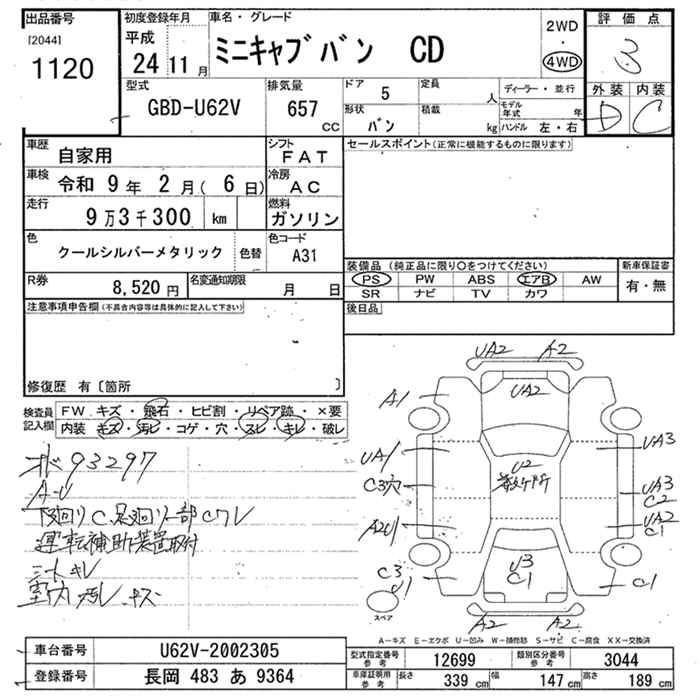 出品番号
[2044]
1120
初度登録年月
平成
24 11 月
車名・グレード
ミニキャブバン CD
2WD
・
4WD
評価点
3
外装 内装
D C
型式
GBD-U62V
排気量
657
CC
ドア
5
定員
人
形状
バン
積載
kg
ディーラー・並行
モデル年式 年
ハンドル 左・右
車歴
自家用
シフト
FAT
車検
令和 9 年 2 月( 6 日)
冷房
AC
走行
9万3千300 km
燃料
ガソリン
色
クールシルバーメタリック
色替
色コード
A31
R券
8,520 円
名変通知期限
月 日
セールスポイント(正常に機能するものに限ります)
装備品 (純正品に限り○をつけてください)
PS PW ABS エアB AW
SR ナビ TV カワ
新車保証書
有・無
後日品
注意事項申告欄(不具合内容等は具体的に記入して下さい)
修復歴 有〔箇所 〕
検査員記入欄
FW キズ・飛石・ヒビ割・リペア跡・×要
内装 キズ・汚レ・コゲ・穴・スレ・キレ・破レ
93297
A-U
下廻りC 足廻り一部Cアレ
運転補助装置取付
シートキレ
室内汚レ キズ
UA2 A2
UA2
A1
UA1
C3穴
U2
UA3
UA3
C2
UA2
C1
C3
U1
U3
C1
C1
UA2 A2
スペア
A-キズ E-エクボ U-凹み W-補修跡 S-サビ C-腐食 XX-交換済
車台番号
U62V-2002305
登録番号
長岡 483 あ 9364
型式指定番号 参考
12699
類別区分番号 参考
3044
車庫証明用 参考
長さ 339 cm 幅 147 cm 高さ 189 cm